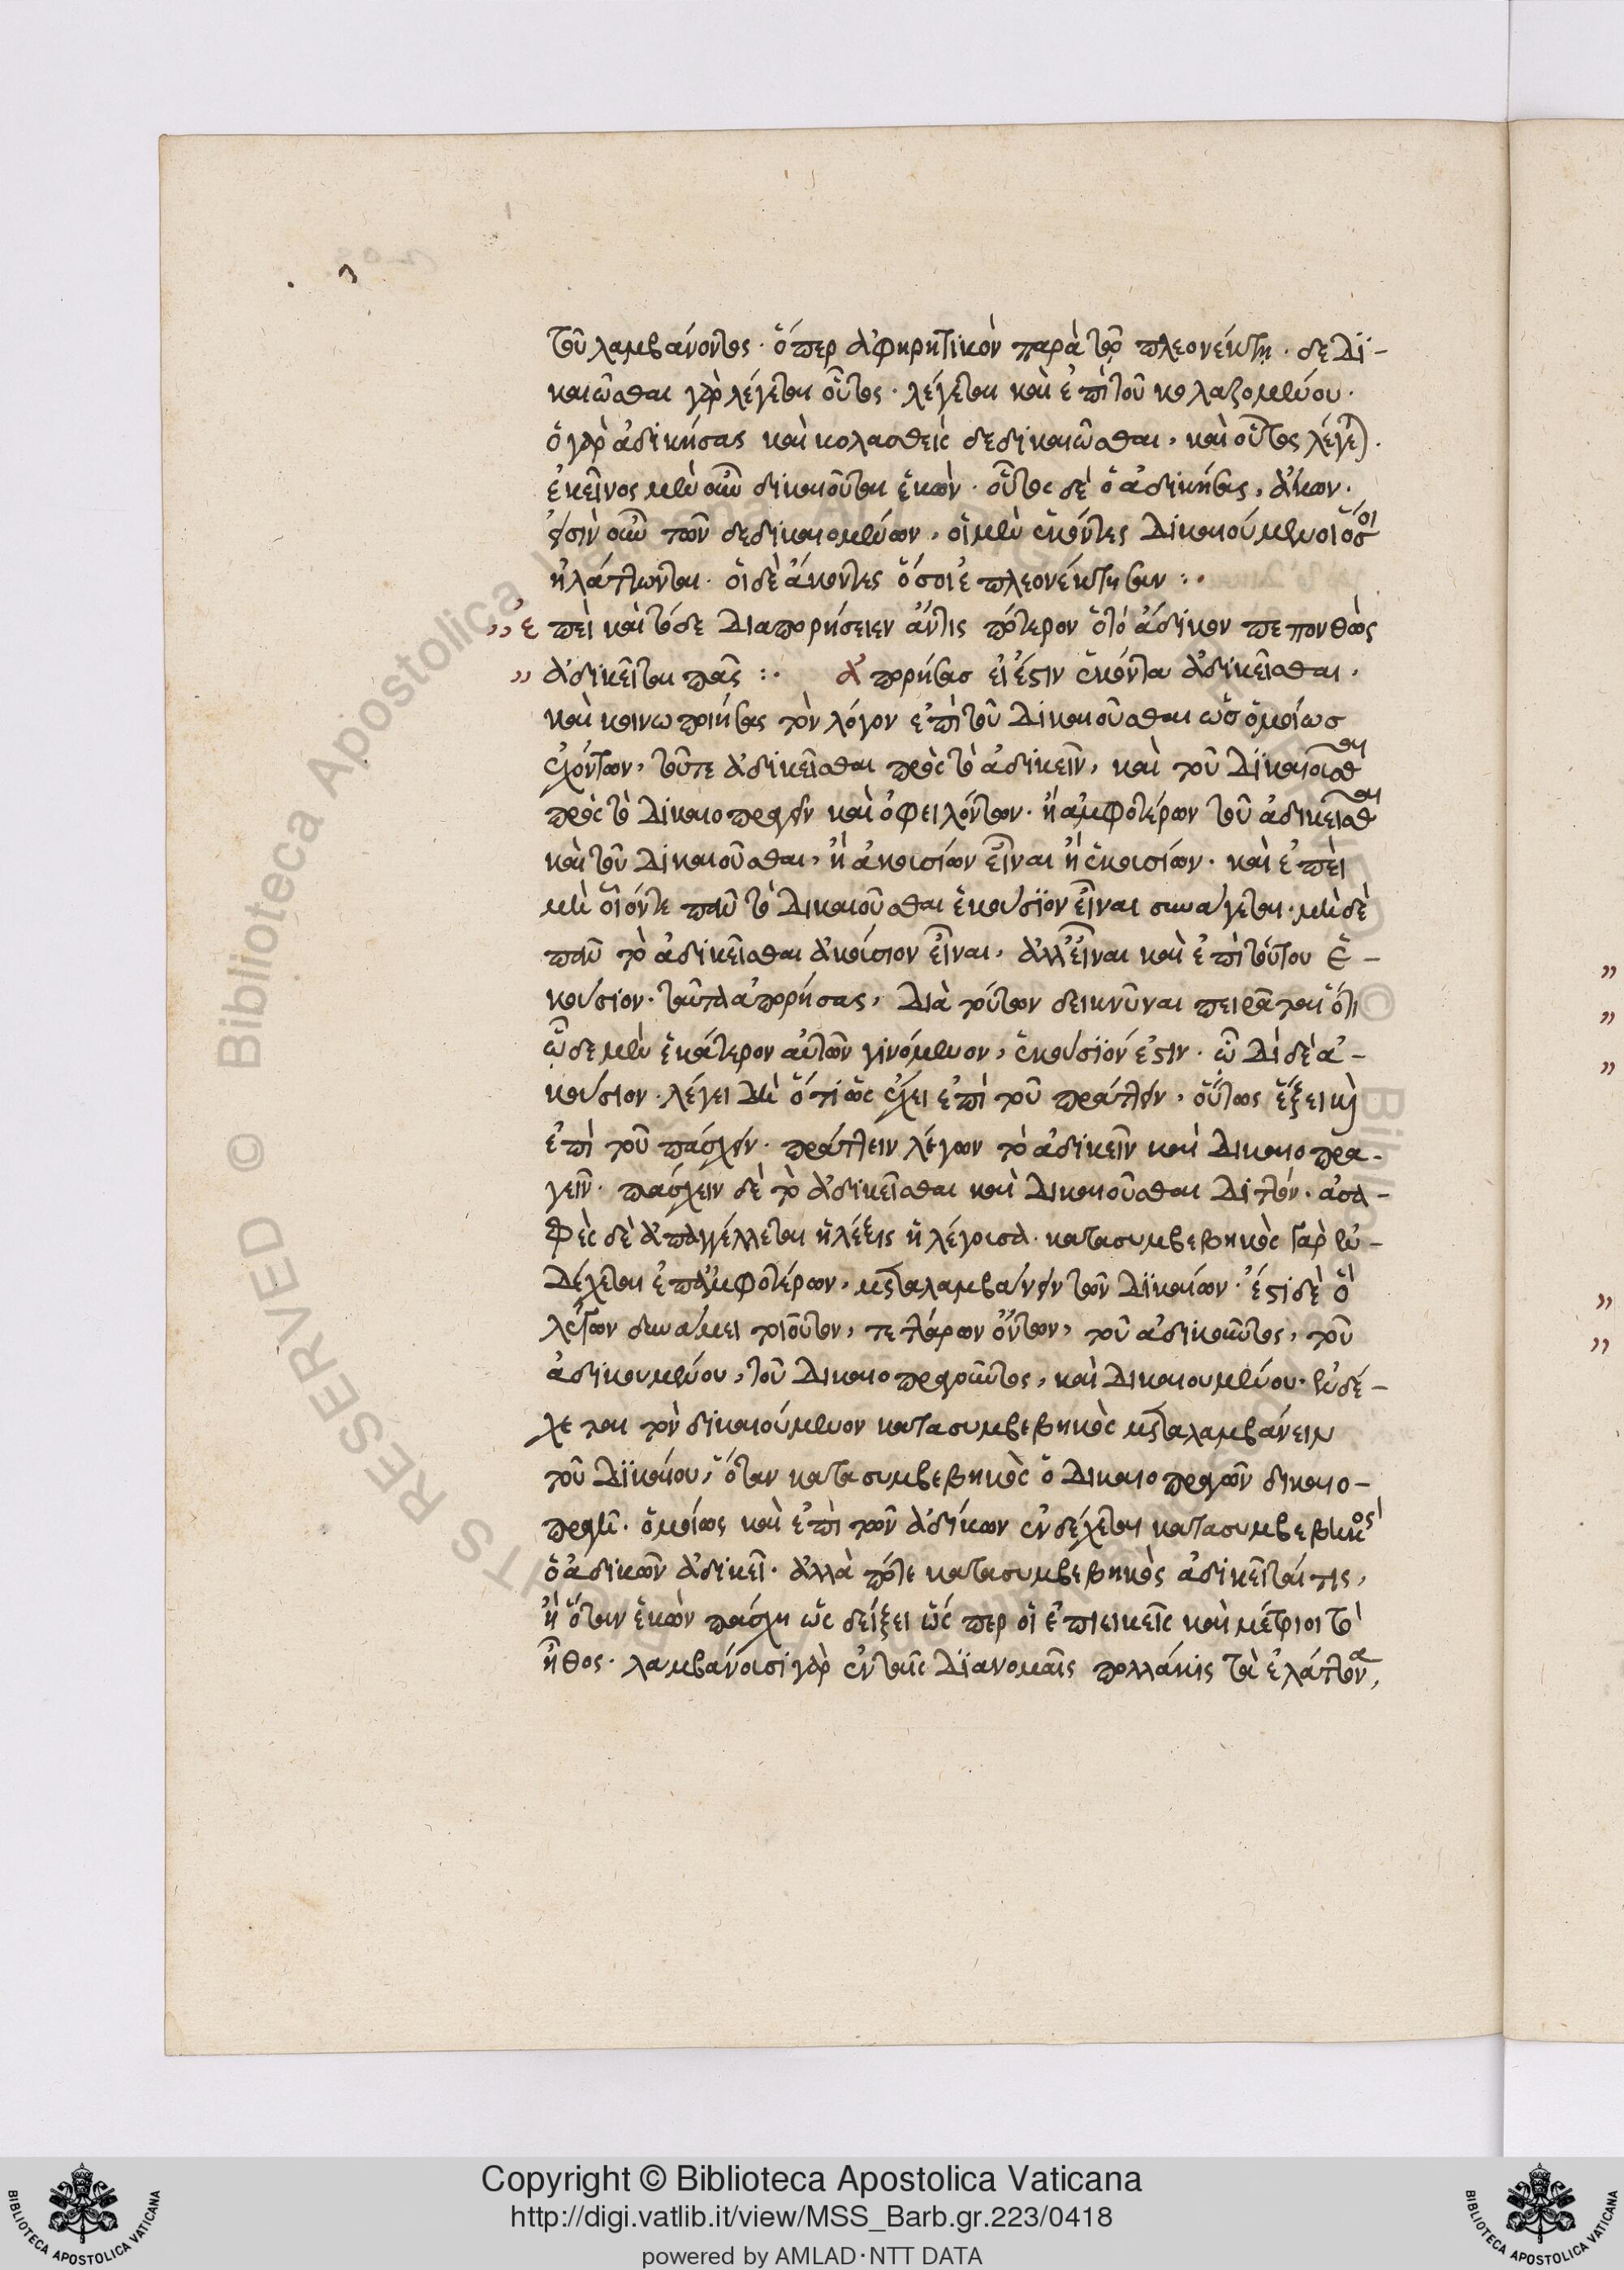 τοῦ λαμβάνοντος· ὅπερ ἀφῃρητικὸν παρὰ τοῦ πλεονέκτῃ· δεδι-
καιῶσθαι γὰρ λέγεται οὗτος· λέγεται καὶ ἐπὶ τοῦ κολαζομένου·
ὁ γὰρ ἀδικήσας καὶ κολασθεὶς δεδικαιῶσθαι, καὶ οὗτος λέγεται·
ἐκεῖνος μὲν οὖν δικαιοῦται ἑκών· οὗτος δὲ ὁ ἀδικήσας, ἄκων·
εἰσὶν οὖν τῶν δεδικαιομένων, οἱ μὲν ἑκόντες δικαιούμενοι ὅσοι
ἠλάττωνται· οἱ δὲ ἄκοντες ὅσοι ἐπλεονέκτησαν :·
,, ἐπεὶ καὶ τόδε διαπορήσειεν ἄν τις πότερον ὁ τὸ ἄδικον πεπονθὼς
,, ἀδικεῖται πᾶς :· ἀπορήσας εἰ ἔστιν ἑκόντα ἀδικεῖσθαι,
καὶ κοινωποιήσας τὸν λόγον ἐπὶ τοῦ δικαιοῦσθαι ὡς ὁμοίως
ἐχόντων, τοῦτε ἀδικεῖσθαι πρὸς τὸ ἀδικεῖν, καὶ τοῦ δικαιοῦσθαι
πρὸς τὸ δικαιοπραγεῖν καὶ ὀφειλόντων· ἢ ἀμφοτέρων τοῦ ἀδικεῖσθαι
καὶ τοῦ δικαιοῦσθαι, ἢ ἀκουσίων εἶναι ἢ ἑκουσίων· καὶ ἐπεὶ
μὴ οἷόντε πᾶν τὸ δικαιοῦσθαι ἑκούσιον εἶναι συνάγεται· μὴ δὲ
πᾶν τὸ ἀδικεῖσθαι ἀκούσιον εἶναι, ἀλλ' εἶναι καὶ ἐπὶ τούτου ἑ-
κούσιον· ταῦτα ἀπορήσας, διὰ τούτων δεικνῦναι πειρᾶται ὅτι
ᾧδε μὲν ἑκάτερον αὐτῶν γινόμενον, ἑκούσιόν ἐστιν· ᾧ δὶ δὲ ἀ-
κούσιον· λέγει δὴ ὅτι ὡς ἔχει ἐπὶ τοῦ πράττειν, οὕτως ἕξει καὶ
ἐπὶ τοῦ πάσχειν· πράττειν λέγων τὸ ἀδικεῖν καὶ δικαιοπρα-
γεῖν· πάσχειν δὲ τὸ ἀδικεῖσθαι καὶ δικαιοῦσθαι διττόν· ἀσα-
φὲς δὲ ἀπαγγέλλεται ἡ λέξις ἡ λέγουσα· κατασυμβεβηκὸς γὰρ ἐν-
δέχεται ἐπ' ἀμφοτέρων, μεταλαμβάνειν τῶν δικαίων· ἔστι δὲ ὃ
λέγων δυνάμει τοιοῦτον, τεττάρων ὄντων, τοῦ ἀδικοῦντος, τοῦ
ἀδικουμένου, τοῦ δικαιοπραγοῦντος, καὶ δικαιουμένου· ἐνδέ-
χεται τὸν δικαιούμενον κατασυμβεβηκὸς μεταλαμβάνειν
τοῦ δικαίου, ὅταν κατασυμβεβηκὸς ὁ δικαιοπραγῶν δικαιο-
πραγῇ· ὁμοίως καὶ ἐπὶ τῶν ἀδίκων ἐνδέχεται κατασυμβεβηκὸς
ὁ ἀδικῶν ἀδικεῖ· ἀλλὰ πότε κατασυμβεβηκὸς ἀδικεῖταί τις,
ἢ ὅταν ἑκὼν πάσχῃ ὡς δείξει ὥσπερ οἱ ἐπιεικεῖς καὶ μέτριοι τὸ
ἦθος· λαμβάνουσι γὰρ ἐν ταῖς διανομαῖς πολλάκις τὰ ἐλάττονα,
Copyright © Biblioteca Apostolica Vaticana
http://digi.vatlib.it/view/MSS_Barb.gr.223/0418
powered by AMLAD·NTT DATA